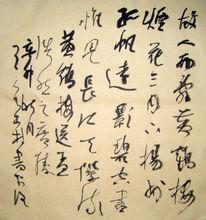 故人西辞黄鹤楼
烟花三月下扬州
孤帆远影碧空尽
惟见长江天际流
黄鹤楼送孟
浩然之广陵